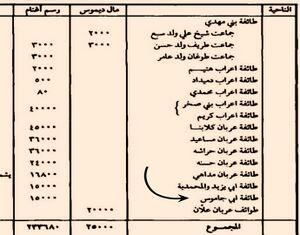 الناحية مال ديموس رسم أغنام
طائفة بني مهدي
جماعت شيخ علي ولد سبع ٢٠٠٠
جماعت طريف ولد حسن ٣٠٠٠ ٣٠٠٠
جماعت طوغان ولد عامر ٣٠٠٠
طائفة اعراب هتيم ٢٠٠٠
طائفة اعراب دميداد ٥٠٠
طائفة اعراب عمدي ٨٠
طائفة اعراب بني صخر } ٤٠٠٠٠
طائفة اعراب كريم
طائفة عربان كلابنا ٤٥٠٠٠
طائفة عربان مساعيد ٣٦٠٠٠
طائفة عربان حراشه ٣٦٠٠٠
طائفة عربان حسنه ٢٤٠٠٠
طائفة عربان مداعي ١٦٨٠٠
طائفة ابي يزيد والمحمدية ١٥٠٠٠
طائفة ابي جاموس ١٥٠٠٠
طوائف عربان علان ٢٠٠٠٠
المجموع ٢٥٠٠٠ ٢٣٣٦٨٠